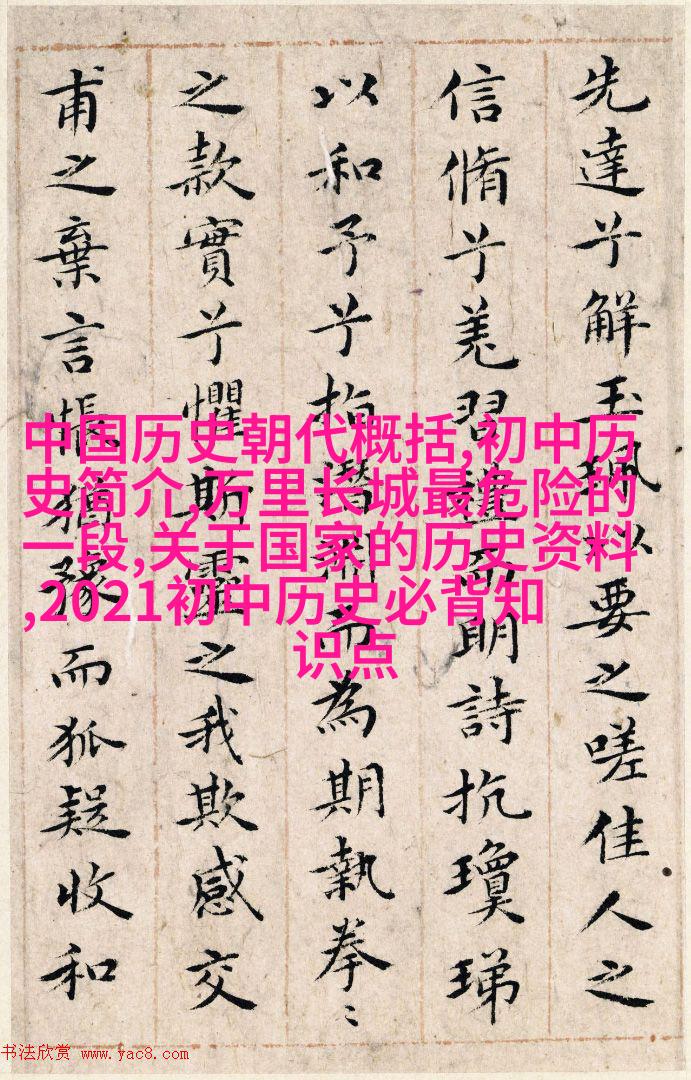 先達兮解玉珮以要之嗟佳人之
信脩兮羌習禮而明詩抗瓊珶
以和予兮指潛淵而為期執拳〻
之款實兮懼斯靈之我欺感交
甫之棄言悵猶豫而狐疑收和
中国历史朝代概括,初中历
史简介,万里长城最危险的
一段,关于国家的历史资料
,2021初中历史必背知
识点
书法欣赏 www.yac8.com